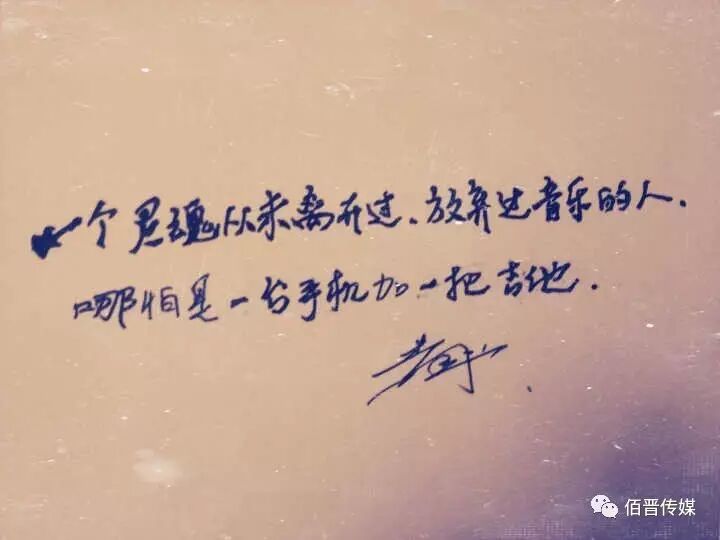 一个灵魂从未离开过、放弃过音乐的人.
哪怕是一台手机加一把吉他.
佰晋传媒